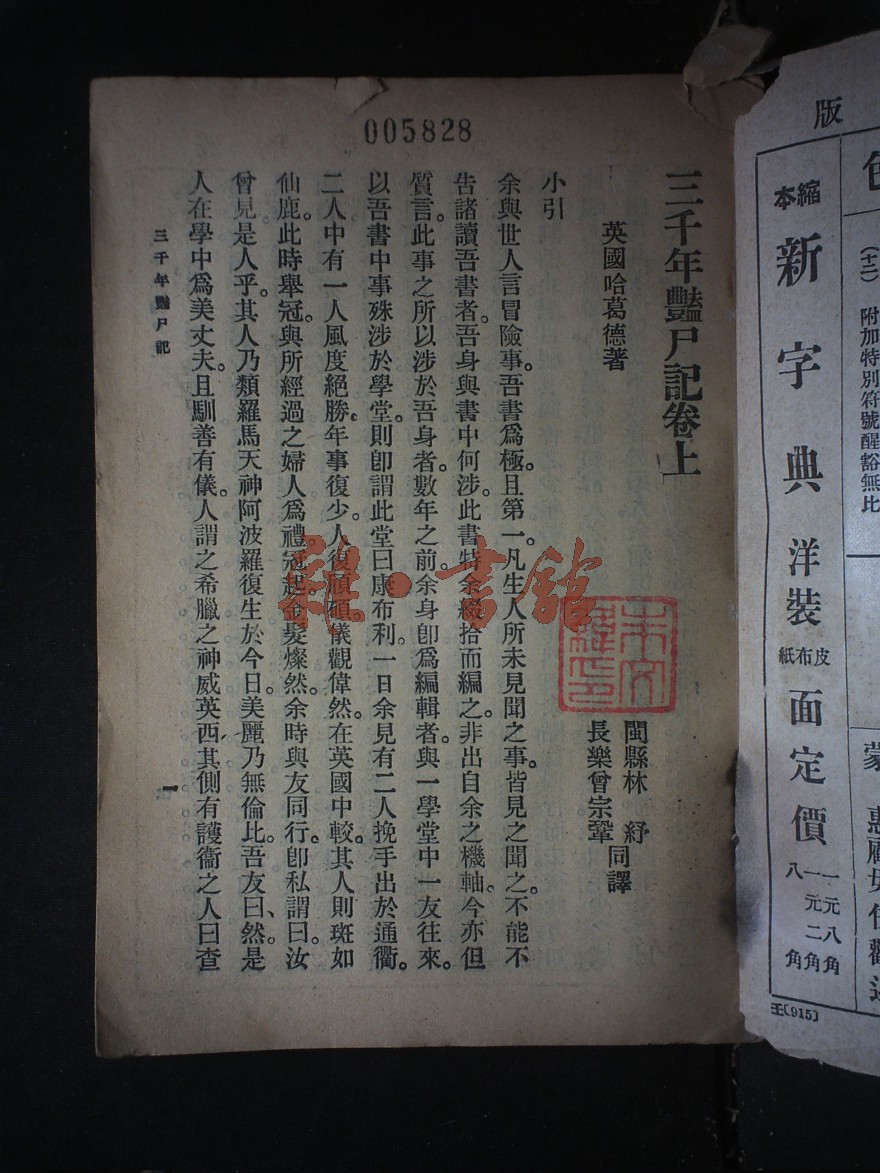 005828
三千年豔尸記卷上
英國哈葛德著
閩縣林　紓
長樂曾宗鞏
同譯
小引
余與世人言冒險事。吾書爲極。且第一凡生人所未見聞之事。皆見之聞之。不能不
告諸讀吾書者。吾身與書中何涉。此書特余綴拾而編之。非出自余之機軸。今亦但
質言。此事之所以涉於吾身者。數年之前。余身卽爲編輯者。與一學堂中一友往來。
以吾書中事殊涉於學堂。則卽謂此堂曰康布利。一日余見有二人挽手出於通衢。
二人中有一人風度絕勝。年事復少。人復頎碩。儀觀偉然。在英國中較。其人則斑如
仙鹿。此時舉冠。與所經過之婦人爲禮。冠起金髮燦然。余時與友同行。卽私謂曰。汝
曾見是人乎。其人乃類羅馬天神阿波羅復生於今日。美麗乃無倫比。吾友曰、然。是
人在學中爲美丈夫。且馴善有儀。人謂之希臘之神威英西其側有護衞之人曰查
三千年豔尸記
一
雜·書館
版
縮本
新字典
洋裝
皮布紙
面定價
一元八角
一元二角
八角
(十二)　附加特別符號醒豁無比
王(915)